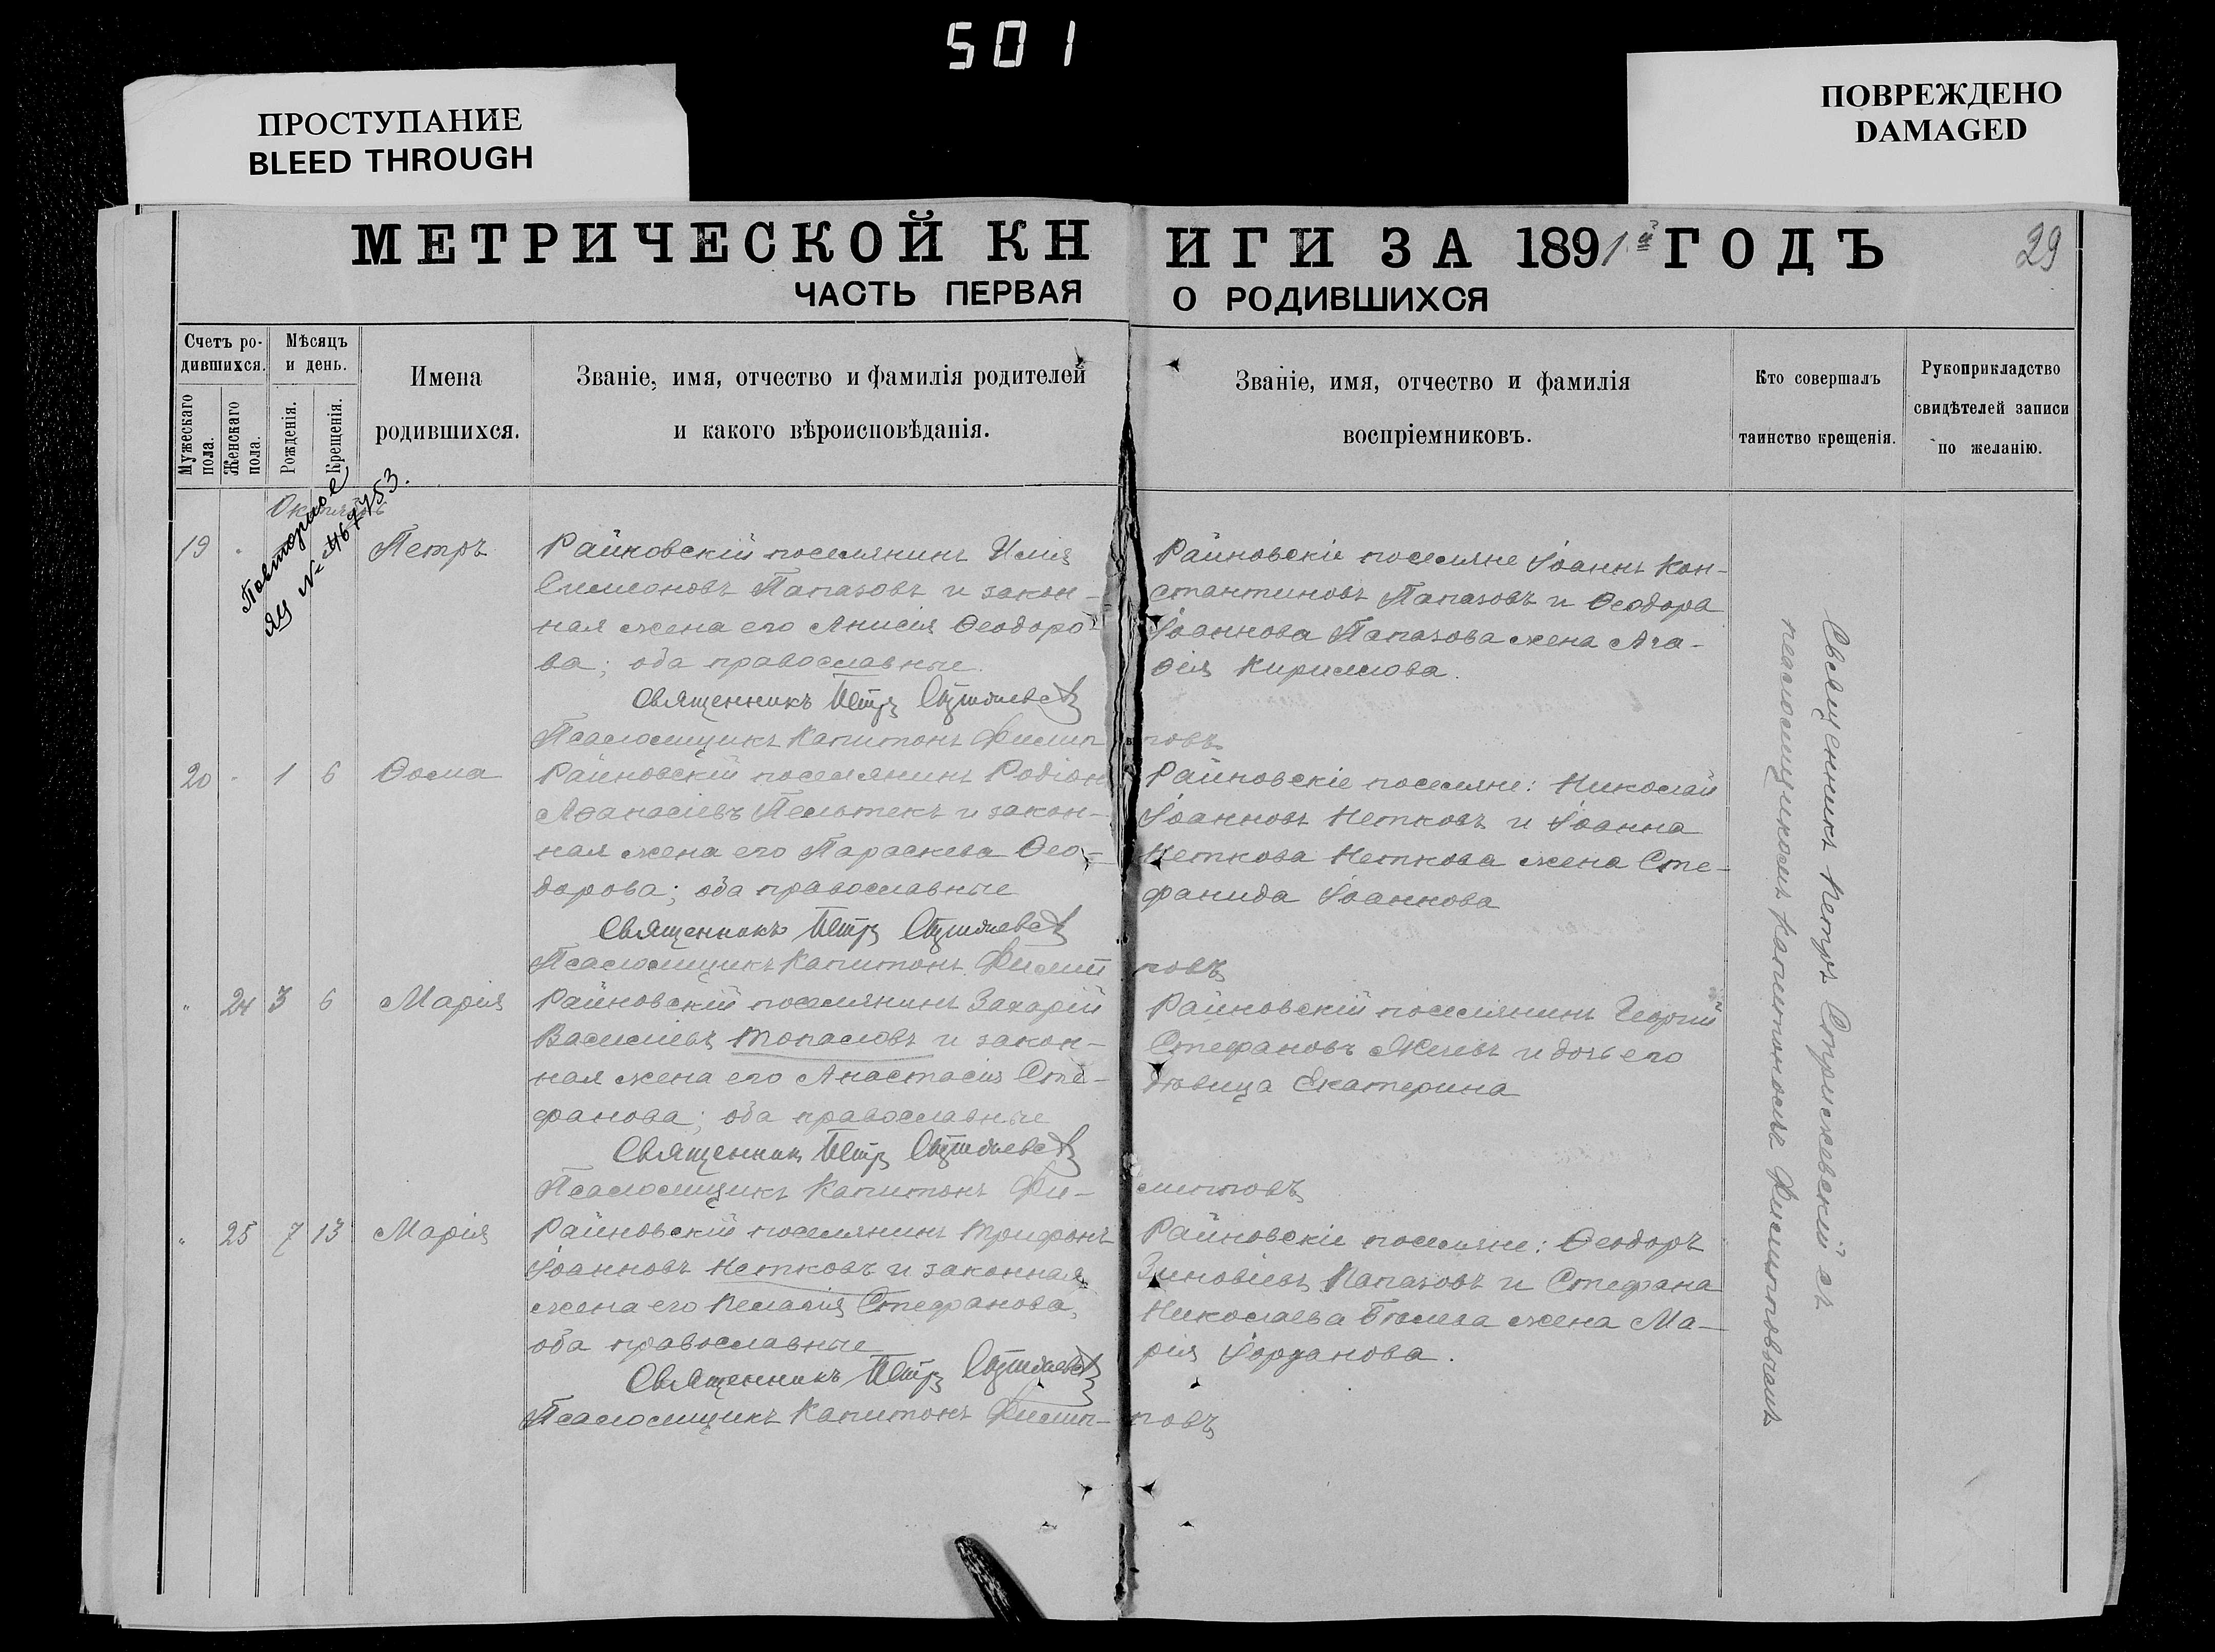 501
ПРОСТУПАНИЕ
BLEED THROUGH
ПОВРЕЖДЕНО
DAMAGED
МЕТРИЧЕСКОЙ КНИГИ ЗА 1891й ГОДЪ
29
ЧАСТЬ ПЕРВАЯ О РОДИВШИХСЯ
Счетъ ро-
дившихся.
Мужескаго пола.
Женскаго пола.
Мѣсяцъ
и день.
Рожденія.
Крещенія.
Имена
родившихся.
Званіе, имя, отчество и фамилія родителей
и какого вѣроисповѣданія.
Званіе, имя, отчество и фамилія
воспріемниковъ.
Кто совершалъ
таинство крещенія.
Рукоприкладство
свидѣтелей записи
по желанію.
Октябрь
Повторное
ЯЩ №
19 " Петръ
Райновскій поселянинъ Илія
Симеоновъ Папазовъ и закон-
ная жена его Анисія Ѳеодоро-
ва; оба православные.
Священникъ Петръ
Псаломщикъ Капитонъ Филипповъ
Райновскіе поселяне Іоаннъ Кон-
стантиновъ Папазовъ и Ѳеодора
Іоаннова Папазова жена Ага-
ѳія Кириллова.
20 " 1 6 Ѳома
Райновскій поселянинъ Родіонъ
Аѳанасіевъ Пельтекъ и закон-
ная жена его Параскева Ѳео-
дорова; оба православные
Священникъ Петръ
Псаломщикъ Капитонъ Филипповъ
Райновскіе поселяне: Николай
Іоанновъ Нетковъ и Іоанна
Неткова Неткова жена Сте-
фанида Іоаннова
" 24 3 6 Марія
Райновскій поселянинъ Захарій
Василіевъ Топаловъ и закон-
ная жена его Анастасія Сте-
фанова; оба православные
Священникъ Петръ
Псаломщикъ Капитонъ Филипповъ
Райновскій поселянинъ Георгій
Стефановъ Желевъ и дочь его
дѣвица Екатерина
" 25 7 13 Марія
Райновскій поселянинъ Трифонъ
Іоанновъ Нетковъ и законная
жена его Пелагія Стефанова,
оба православные
Священникъ Петръ
Псаломщикъ Капитонъ Филипповъ
Райновскіе поселяне: Ѳеодоръ
Зиновіевъ Папазовъ и Стефана
Николаева жена Ма-
рія Іорданова.
Священникъ Петръ съ
псаломщикомъ Капитономъ Филипповымъ